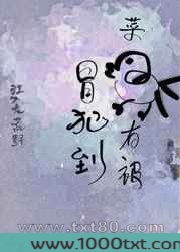 菜
有被
冒犯到
www.txt80.com
www.1000txt.com